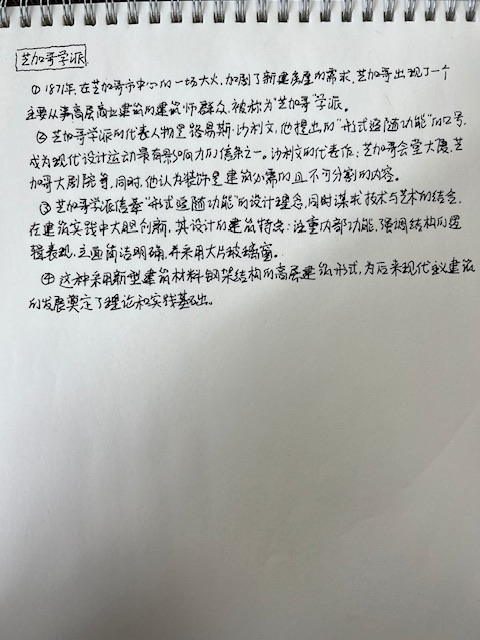 芝加哥学派
①1871年,在芝加哥市中心的一场大火,加剧了新建房屋的需求,芝加哥出现了一个
主要从事高层商业建筑的建筑师群众,被称为“芝加哥”学派。
②芝加哥学派的代表人物是路易斯·沙利文,他提出的“形式追随功能”的口号,
成为现代设计运动最有影响力的信条之一。沙利文的代表作:芝加哥会堂大厦,芝
加哥大剧院等,同时,他认为装饰是建筑必需的且不可分割的内容。
③芝加哥学派信奉“形式追随功能”的设计理念,同时谋求技术与艺术的结合,
在建筑实践中大胆创新,其设计的建筑特点:注重内部功能,强调结构的逻
辑表现,立面简洁明确,并采用大片玻璃窗。
④这种采用新型建筑材料钢架结构的高层建筑形式,为后来现代主义建筑
的发展奠定了理论和实践基础。